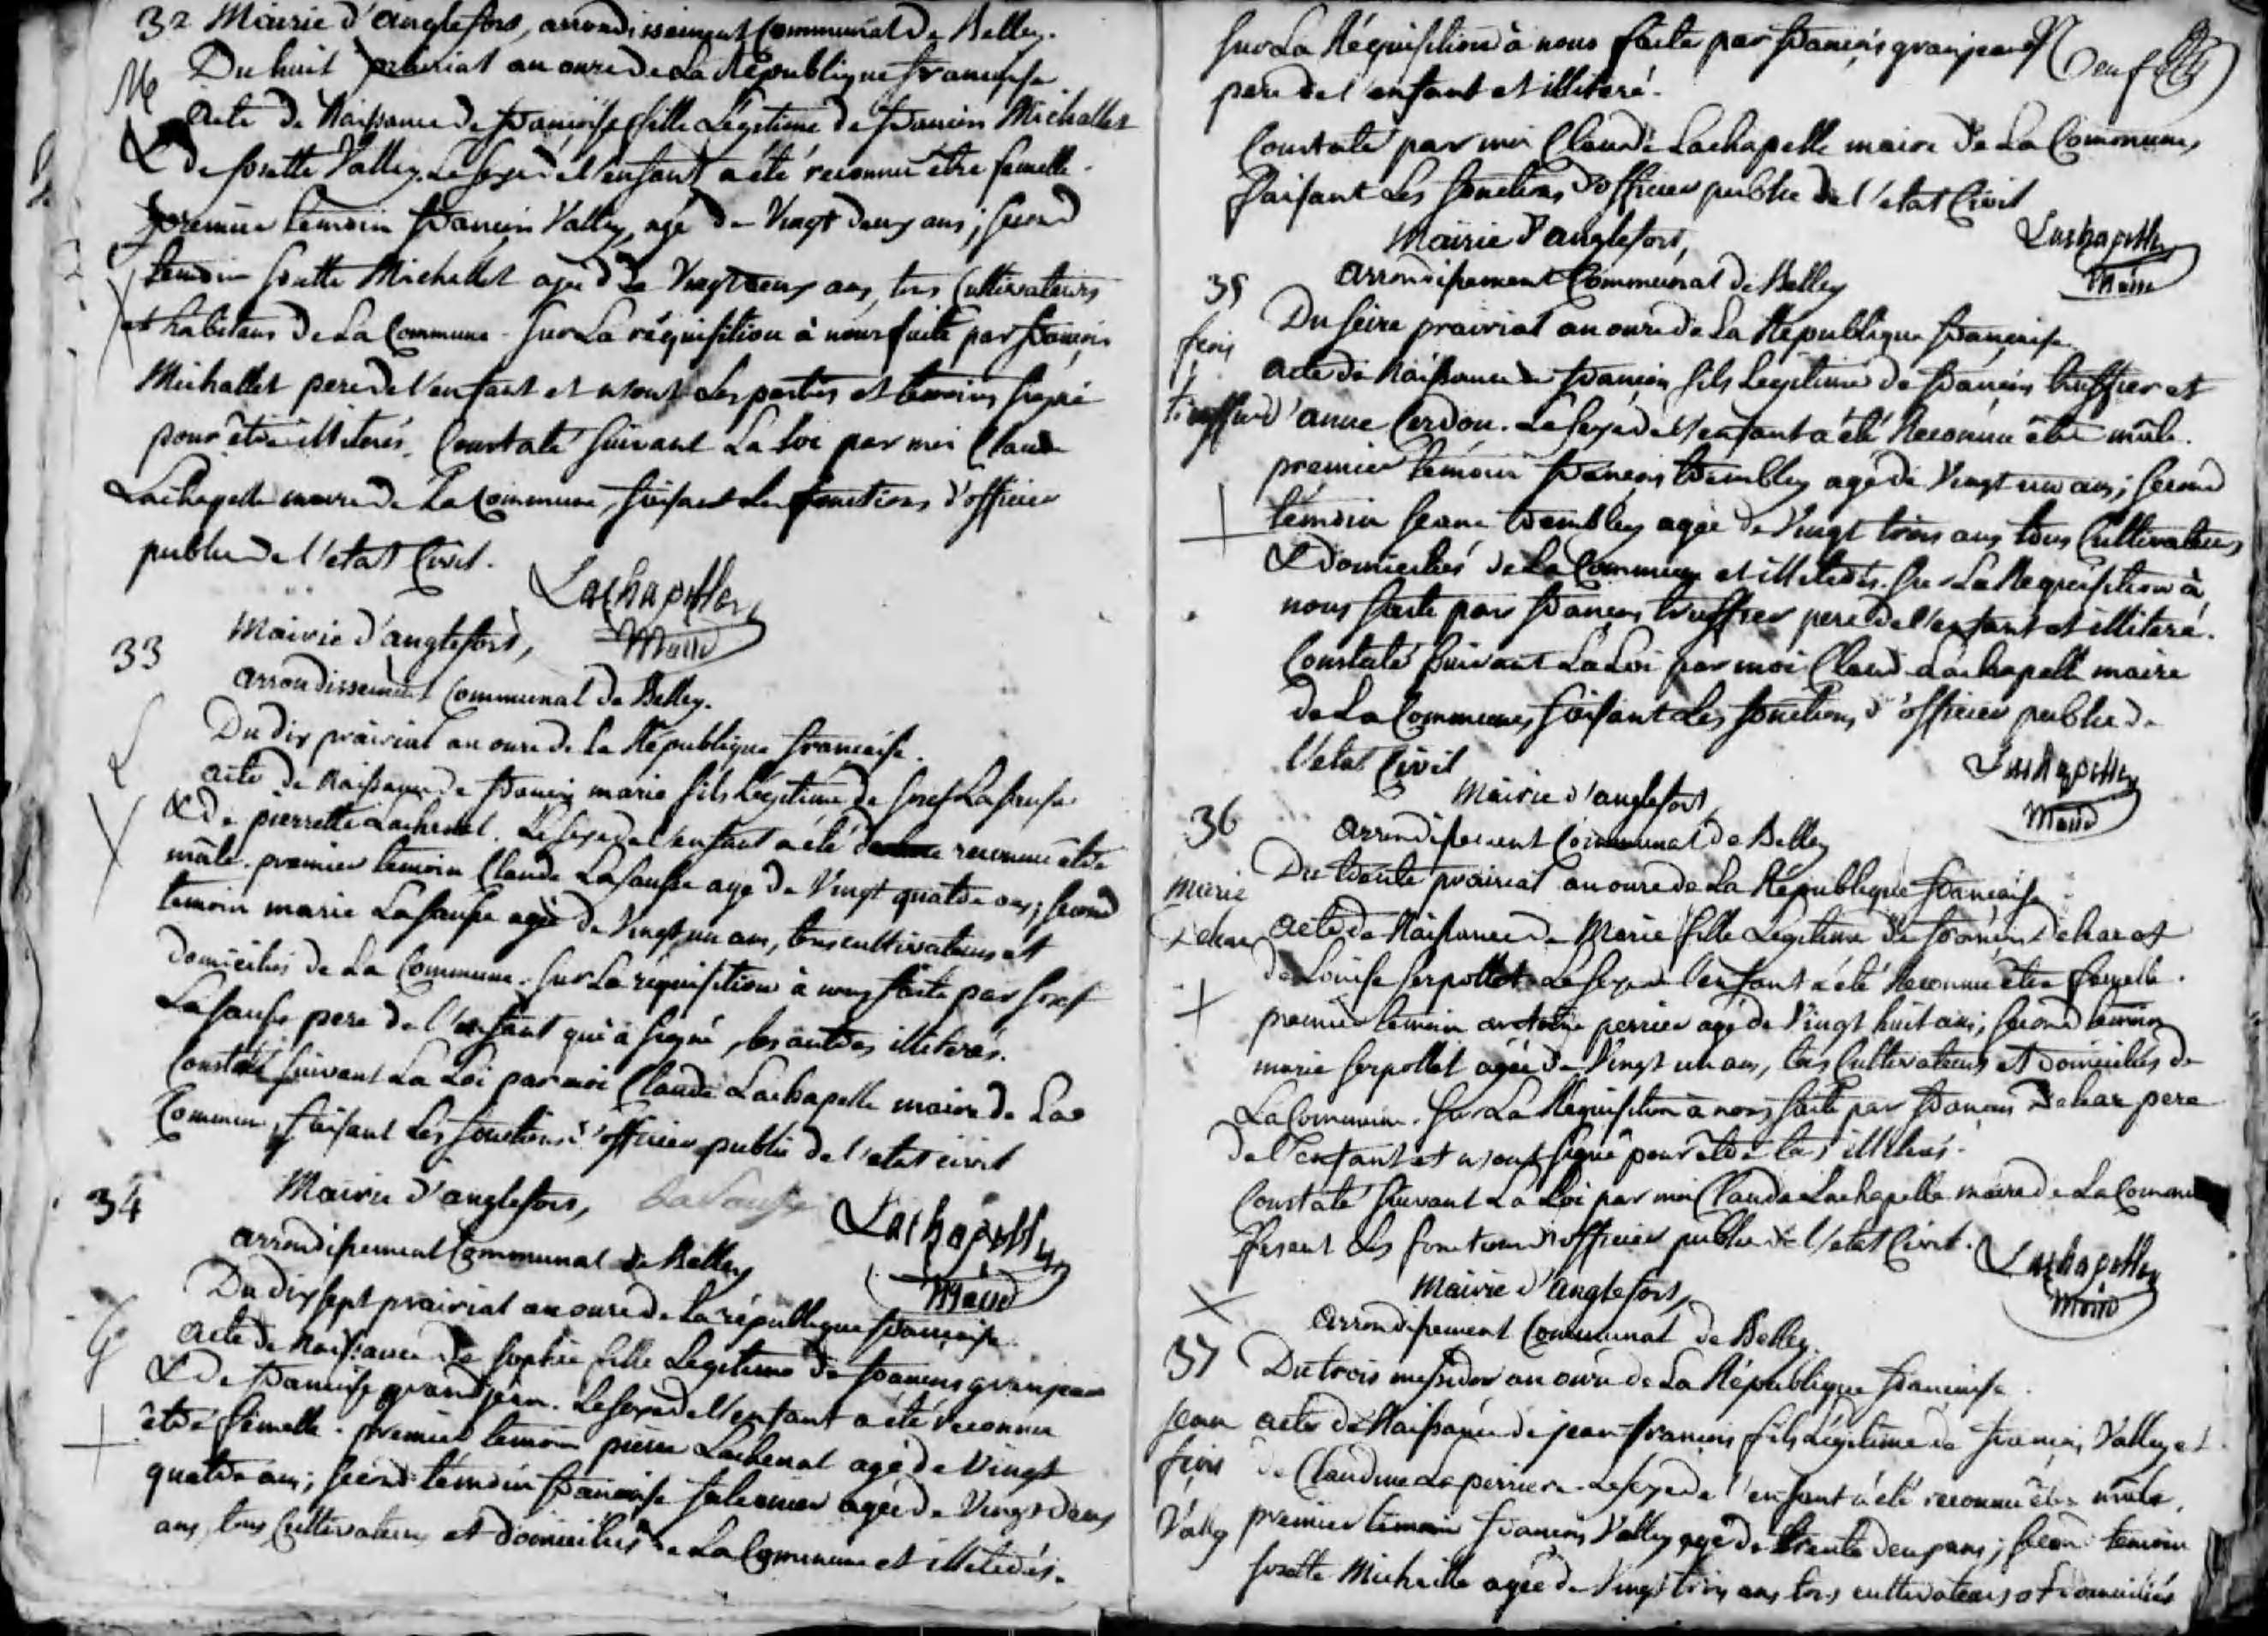 32 Mairie d'anglefort, arrondissement Communal De Belley.
Du huit prairial an onze De La République française
Acte de Naissance De françoise fille Légitime de françois Michallet
& De josette Valley. Le sexe de l'enfant a été reconnu être femelle.
premier témoin françois Valley, agé De Vingt deux ans ; second
temoin josette Michallet agée De Vingt deux ans, tous Cultivateurs
et habitans De La Commune. Sur La réquisition à nous faite par françois
Michallet pere de l'enfant et n'ont Les parties et temoins signé
pour être illiterés. Constaté suivant La Loi par moi Claude
Lachapelle maire De La Commune, faisant Les fonctions d'officier
public De l'etat Civil.
Lachapelle
Maire
33 Mairie d'anglefort,
arrondissement Communal De Belley.
Du dix prairial an onze De La République française.
acte de Naissance De françois marie fils Légitime De josef Lasausse
& De pierrette Lachenal. Le sexe de l'enfant a été reconnu être
mâle. premier temoin Claude Lasausse agé De Vingt quatre ans ; second
temoin marie Lasausse agée De Vingt un ans, tous cultivateurs et
domiciliés De La Commune. Sur La réquisition à nous faite par josef
Lasausse pere De l'enfant qui à signé, les autres illiterés.
Constaté suivant La Loi par moi Claude Lachapelle maire De La
Commune, faisant Les fonctions d'officier public De l'etat civil
Lasausse
Lachapelle
Maire
34 Mairie d'anglefort,
arrondissement Communal De Belley
Du dix sept prairial an onze De La république française
acte de Naissance De sophie fille Légitime De françois granjean
& De françoise grandjean. Le sexe de l'enfant a été reconnu
être femelle. premier temoin pierre Lachenal agé De Vingt
quatre ans ; second témoin françoise agée De Vingt deux
ans, tous Cultivateurs et domiciliés De La Commune et illiterés.
Sur La Réquisition à nous faite par françois granjean
pere de l'enfant et illiteré.
Constaté par moi Claude Lachapelle maire De La Commune,
faisant Les fonctions d'officier public De l'etat Civil
Lachapelle
Maire
Mairie d'anglefort,
35 arrondissement Communal De Belley
Du seize prairial an onze De La République française
fçois acte de Naissance De françois fils Légitime De françois truffier et
d'anne Cerdon. Le sexe de l'enfant a été Reconnu être mâle.
premier témoin françois trembley agé De Vingt un ans ; second
témoin jeane trembley agée De Vingt trois ans tous Cultivateurs
& Domiciliés De La Commune et illiterés. Sur La Requisition à
nous faite par françois truffier pere de l'enfant et illiteré.
Constaté suivant La Loi par moi Claude Lachapelle maire
De La Commune, faisant Les fonctions d'officier public De
l'etat Civil
Lachapelle
Maire
Mairie d'anglefort,
36 arrondissement Communal De Belley
Du trente prairial an onze De La République française
marie
Dchar acte de Naissance De Marie fille Légitime De françois Dchar et
De Louise serpollet. Le sexe de l'enfant a été Reconnu être femelle.
premier temoin antoine perrier agé De Vingt huit ans ; second temoin
marie serpollet agée De Vingt un ans, tous Cultivateurs et Domiciliés De
La Commune. Sur La Réquisition à nous faite par françois Dchar pere
De l'enfant et n'ont signé pour être tous illiterés.
Constaté suivant La Loi par moi Claude Lachapelle maire De La Commune
fesant Les fonctions d'officier public De l'etat Civil.
Lachapelle
Maire
Mairie d'anglefort,
arrondissement Communal De Belley.
37 Du trois messidor an onze De La République française.
jean
fçois
Vally
acte de Naissance De jean françois fils Légitime De françois Valley et
De Claudine La perriere. Le sexe De l'enfant a été reconnu être mâle.
premier témoin françois Valley agé De trente deux ans ; second temoin
josette Michaille agée De Vingt trois ans tous cultivateurs et domiciliés